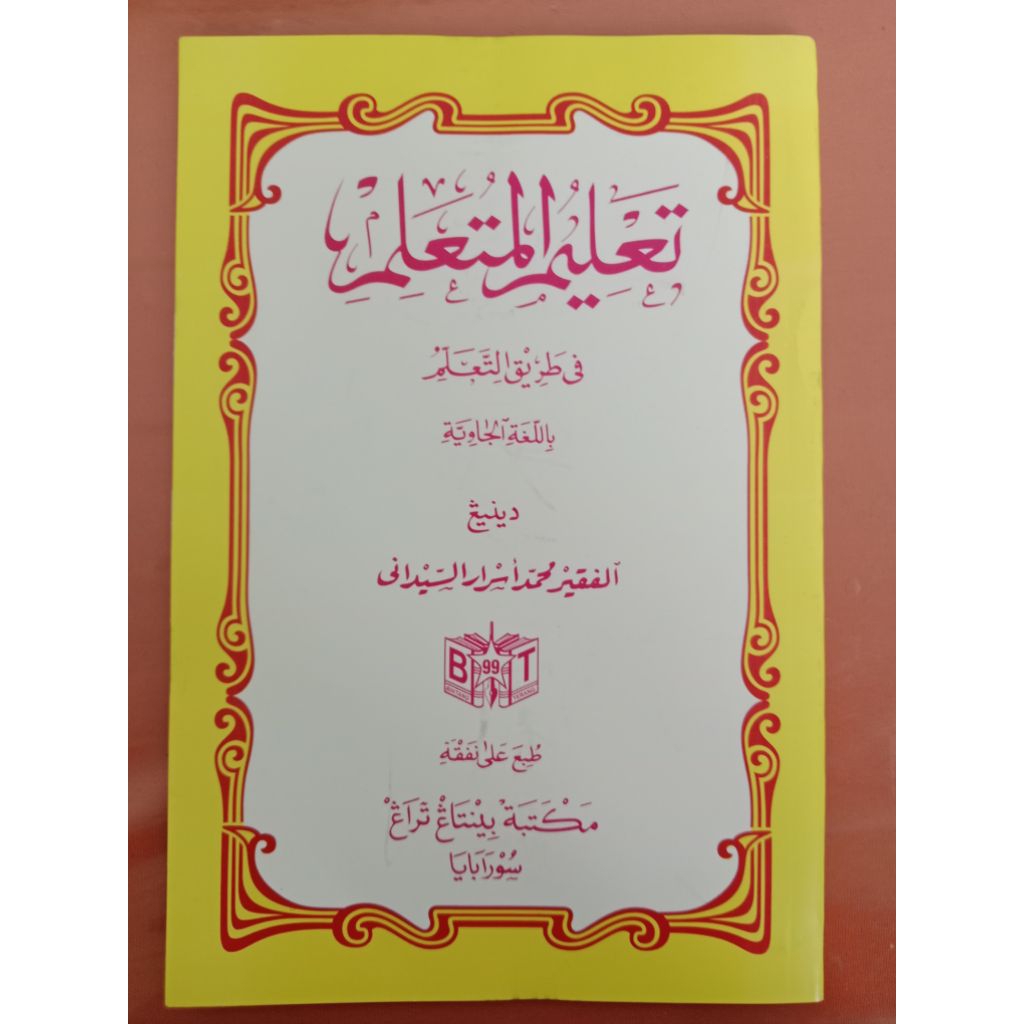 تَعْلِيمُ الْمُتَعَلِّمْ
فى طَرِيْقِ التَّعَلُّمِ
بِاللُّغَةِ الْجَاوِيَّةِ
دينيڠ
الفقير محمّد أسرار السّيدانى
B 99 T
BINTANG TERANG
طُبِعَ عَلَى نَفَقَةِ
مَكْتَبَة بِيْنْتَاڠْ تَرَاڠْ
سُوْرَابَايَا